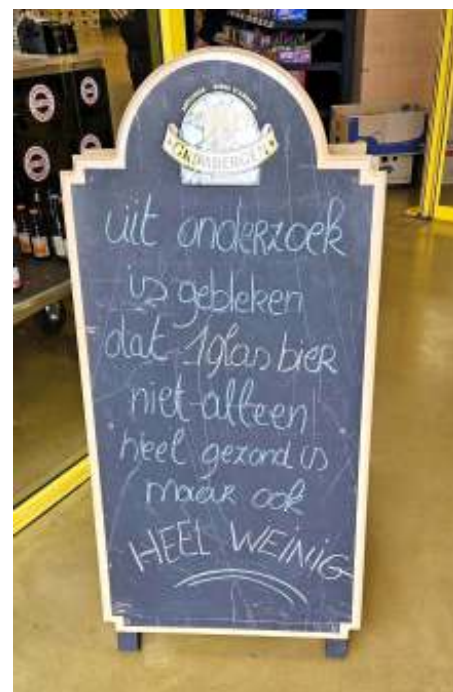 GRIMBERGEN
uit onderzoek
is gebleken
dat 1 glas bier
niet alleen
heel gezond is
maar ook
HEEL WEINIG